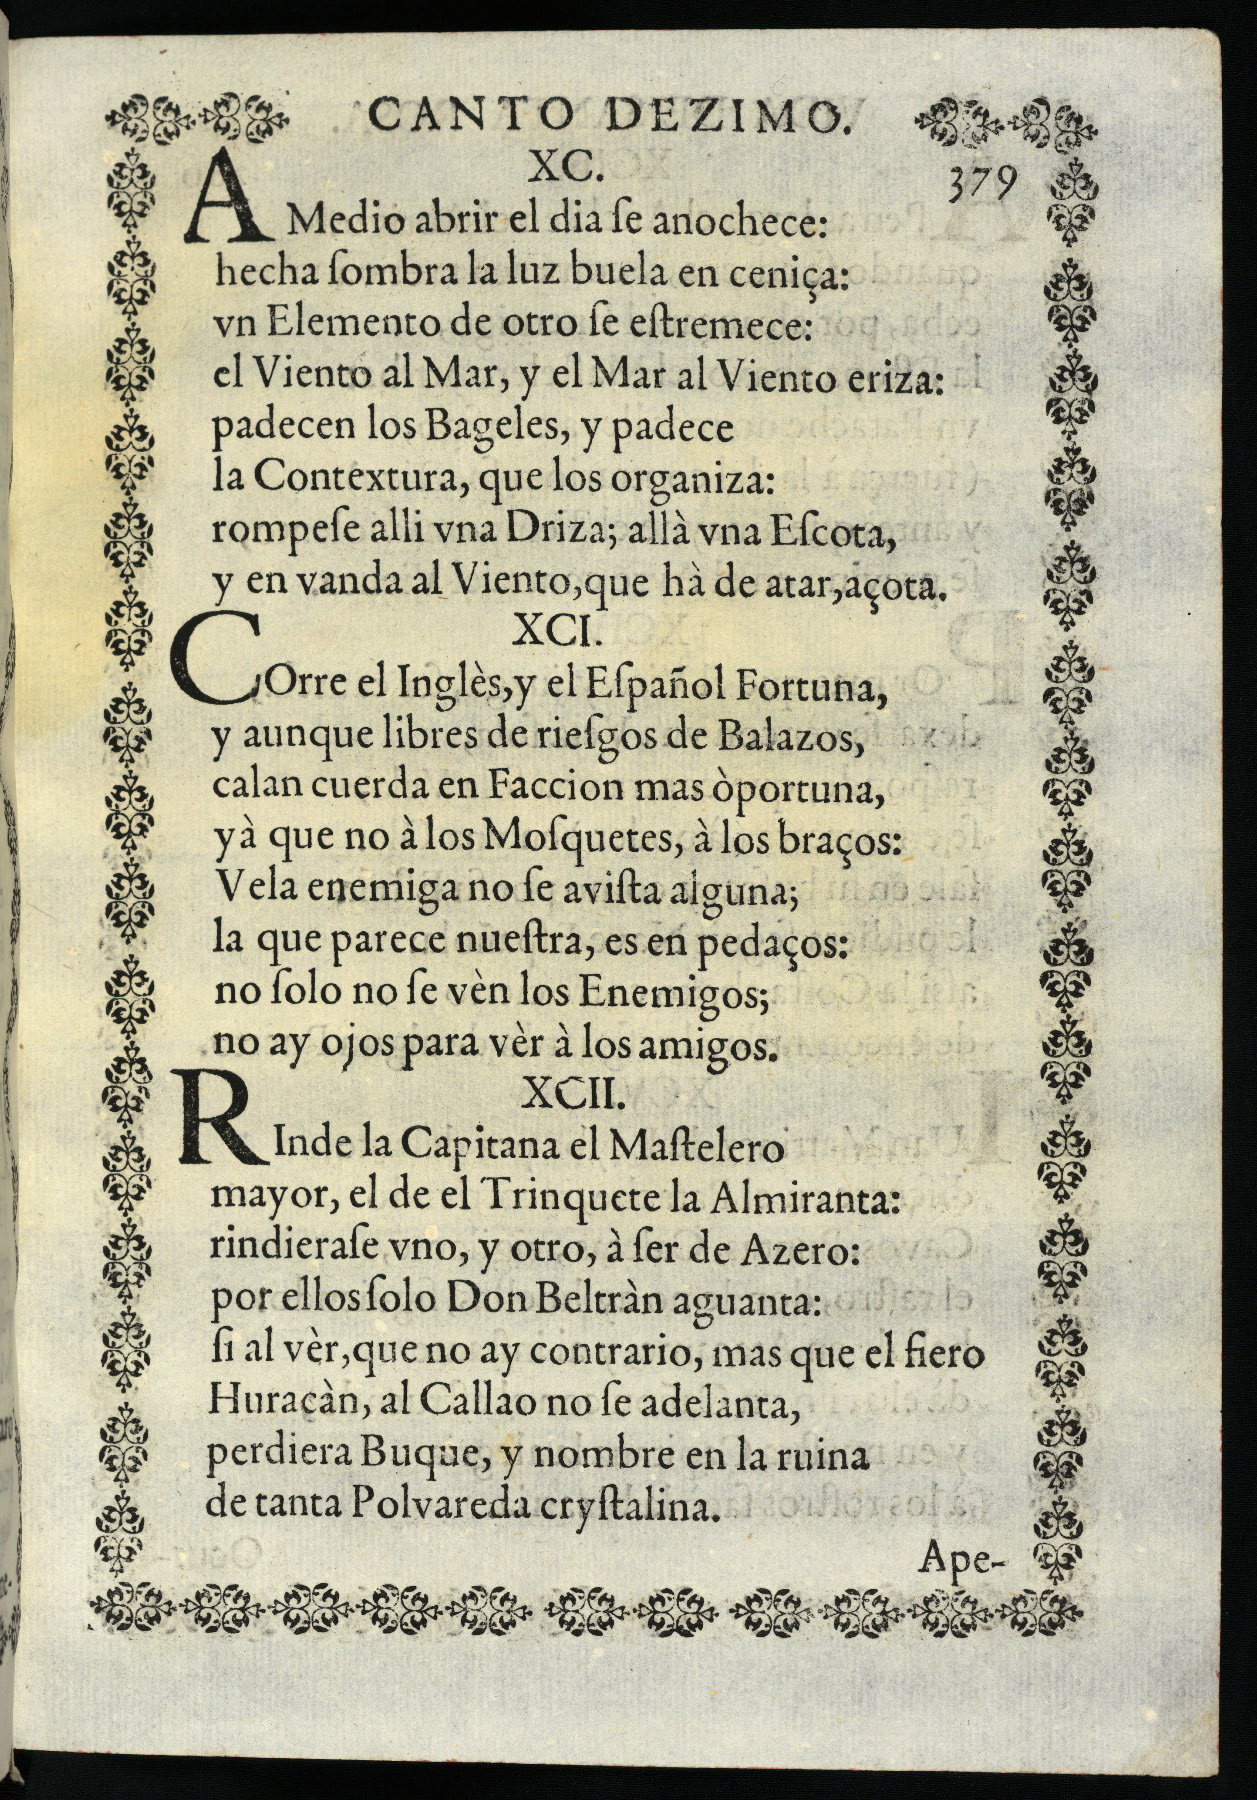 CANTO DEZIMO.
379
XC.
A Medio abrir el dia ſe anochece:
hecha ſombra la luz buela en ceniça:
vn Elemento de otro ſe eſtremece:
el Viento al Mar, y el Mar al Viento eriza:
padecen los Bageles, y padece
la Contextura, que los organiza:
rompeſe alli vna Driza; allà vna Eſcota,
y en vanda al Viento, que hà de atar, açota.
XCI.
COrre el Inglès, y el Eſpañol Fortuna,
y aunque libres de rieſgos de Balazos,
calan cuerda en Faccion mas òportuna,
yà que no à los Moſquetes, à los braços:
Vela enemiga no ſe aviſta alguna;
la que parece nueſtra, es en pedaços:
no ſolo no ſe vèn los Enemigos;
no ay ojos para vèr à los amigos.
XCII.
RInde la Capitana el Maſtelero
mayor, el de el Trinquete la Almiranta:
rindieraſe vno, y otro, à ſer de Azero:
por ellos ſolo Don Beltràn aguanta:
ſi al vèr, que no ay contrario, mas que el fiero
Huracàn, al Callao no ſe adelanta,
perdiera Buque, y nombre en la ruina
de tanta Polvareda cryſtalina.
Ape-